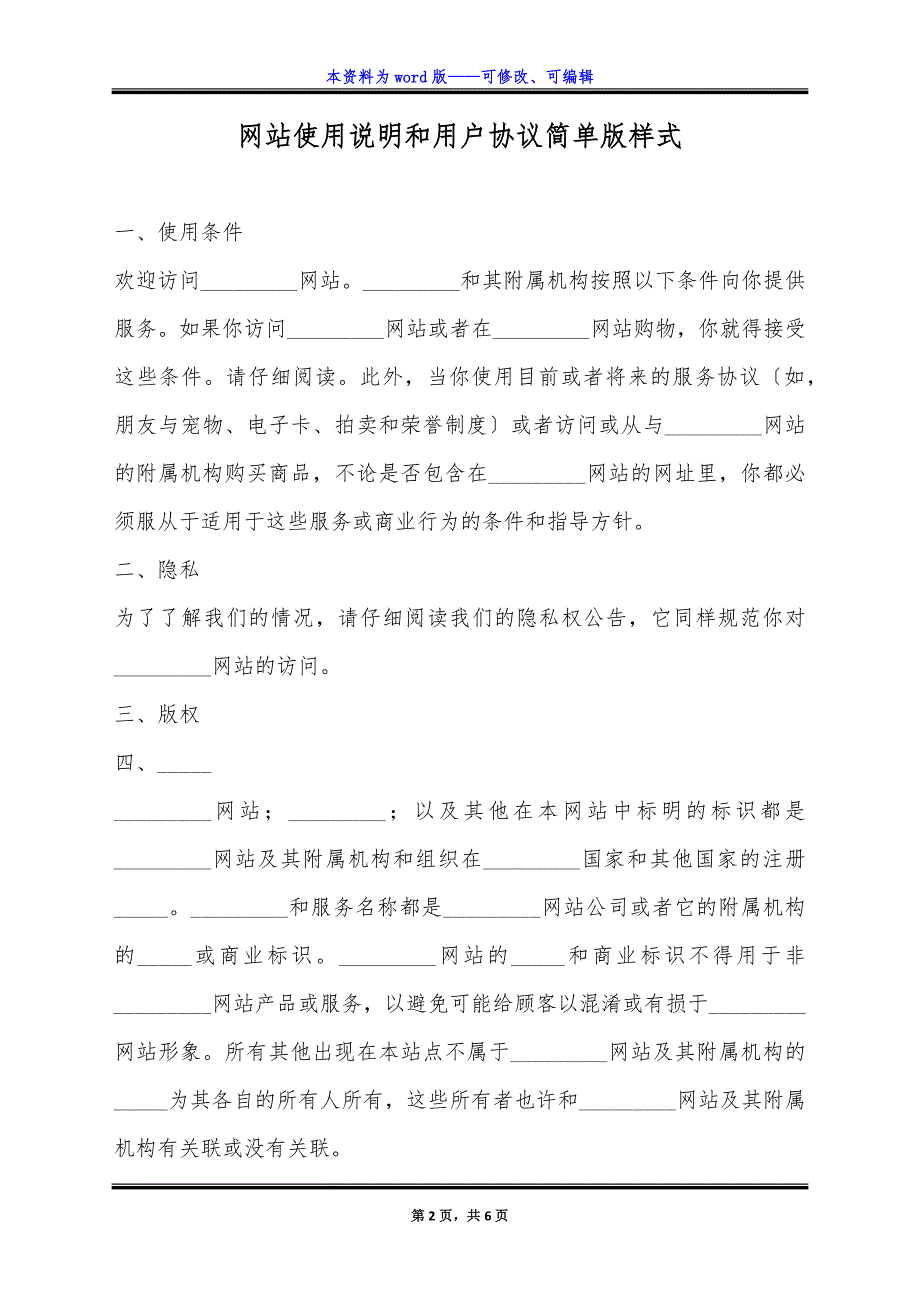 本资料为 word 版——可修改、可编辑
网站使用说明和用户协议简单版样式
一、使用条件
欢迎访问_________网站。_________和其附属机构按照以下条件向你提供
服务。如果你访问_________网站或者在_________网站购物，你就得接受
这些条件。请仔细阅读。此外，当你使用目前或者将来的服务协议〔如，
朋友与宠物、电子卡、拍卖和荣誉制度〕或者访问或从与_________网站
的附属机构购买商品，不论是否包含在_________网站的网址里，你都必
须服从于适用于这些服务或商业行为的条件和指导方针。
二、隐私
为了了解我们的情况，请仔细阅读我们的隐私权公告，它同样规范你对
_________网站的访问。
三、版权
四、_____
_________网站；_________；以及其他在本网站中标明的标识都是
_________网站及其附属机构和组织在_________国家和其他国家的注册
_____。_________和服务名称都是_________网站公司或者它的附属机构
的_____或商业标识。_________网站的_____和商业标识不得用于非
_________网站产品或服务，以避免可能给顾客以混淆或有损于_________
网站形象。所有其他出现在本站点不属于_________网站及其附属机构的
_____为其各自的所有人所有，这些所有者也许和_________网站及其附属
机构有关联或没有关联。
第 2 页，共 6 页